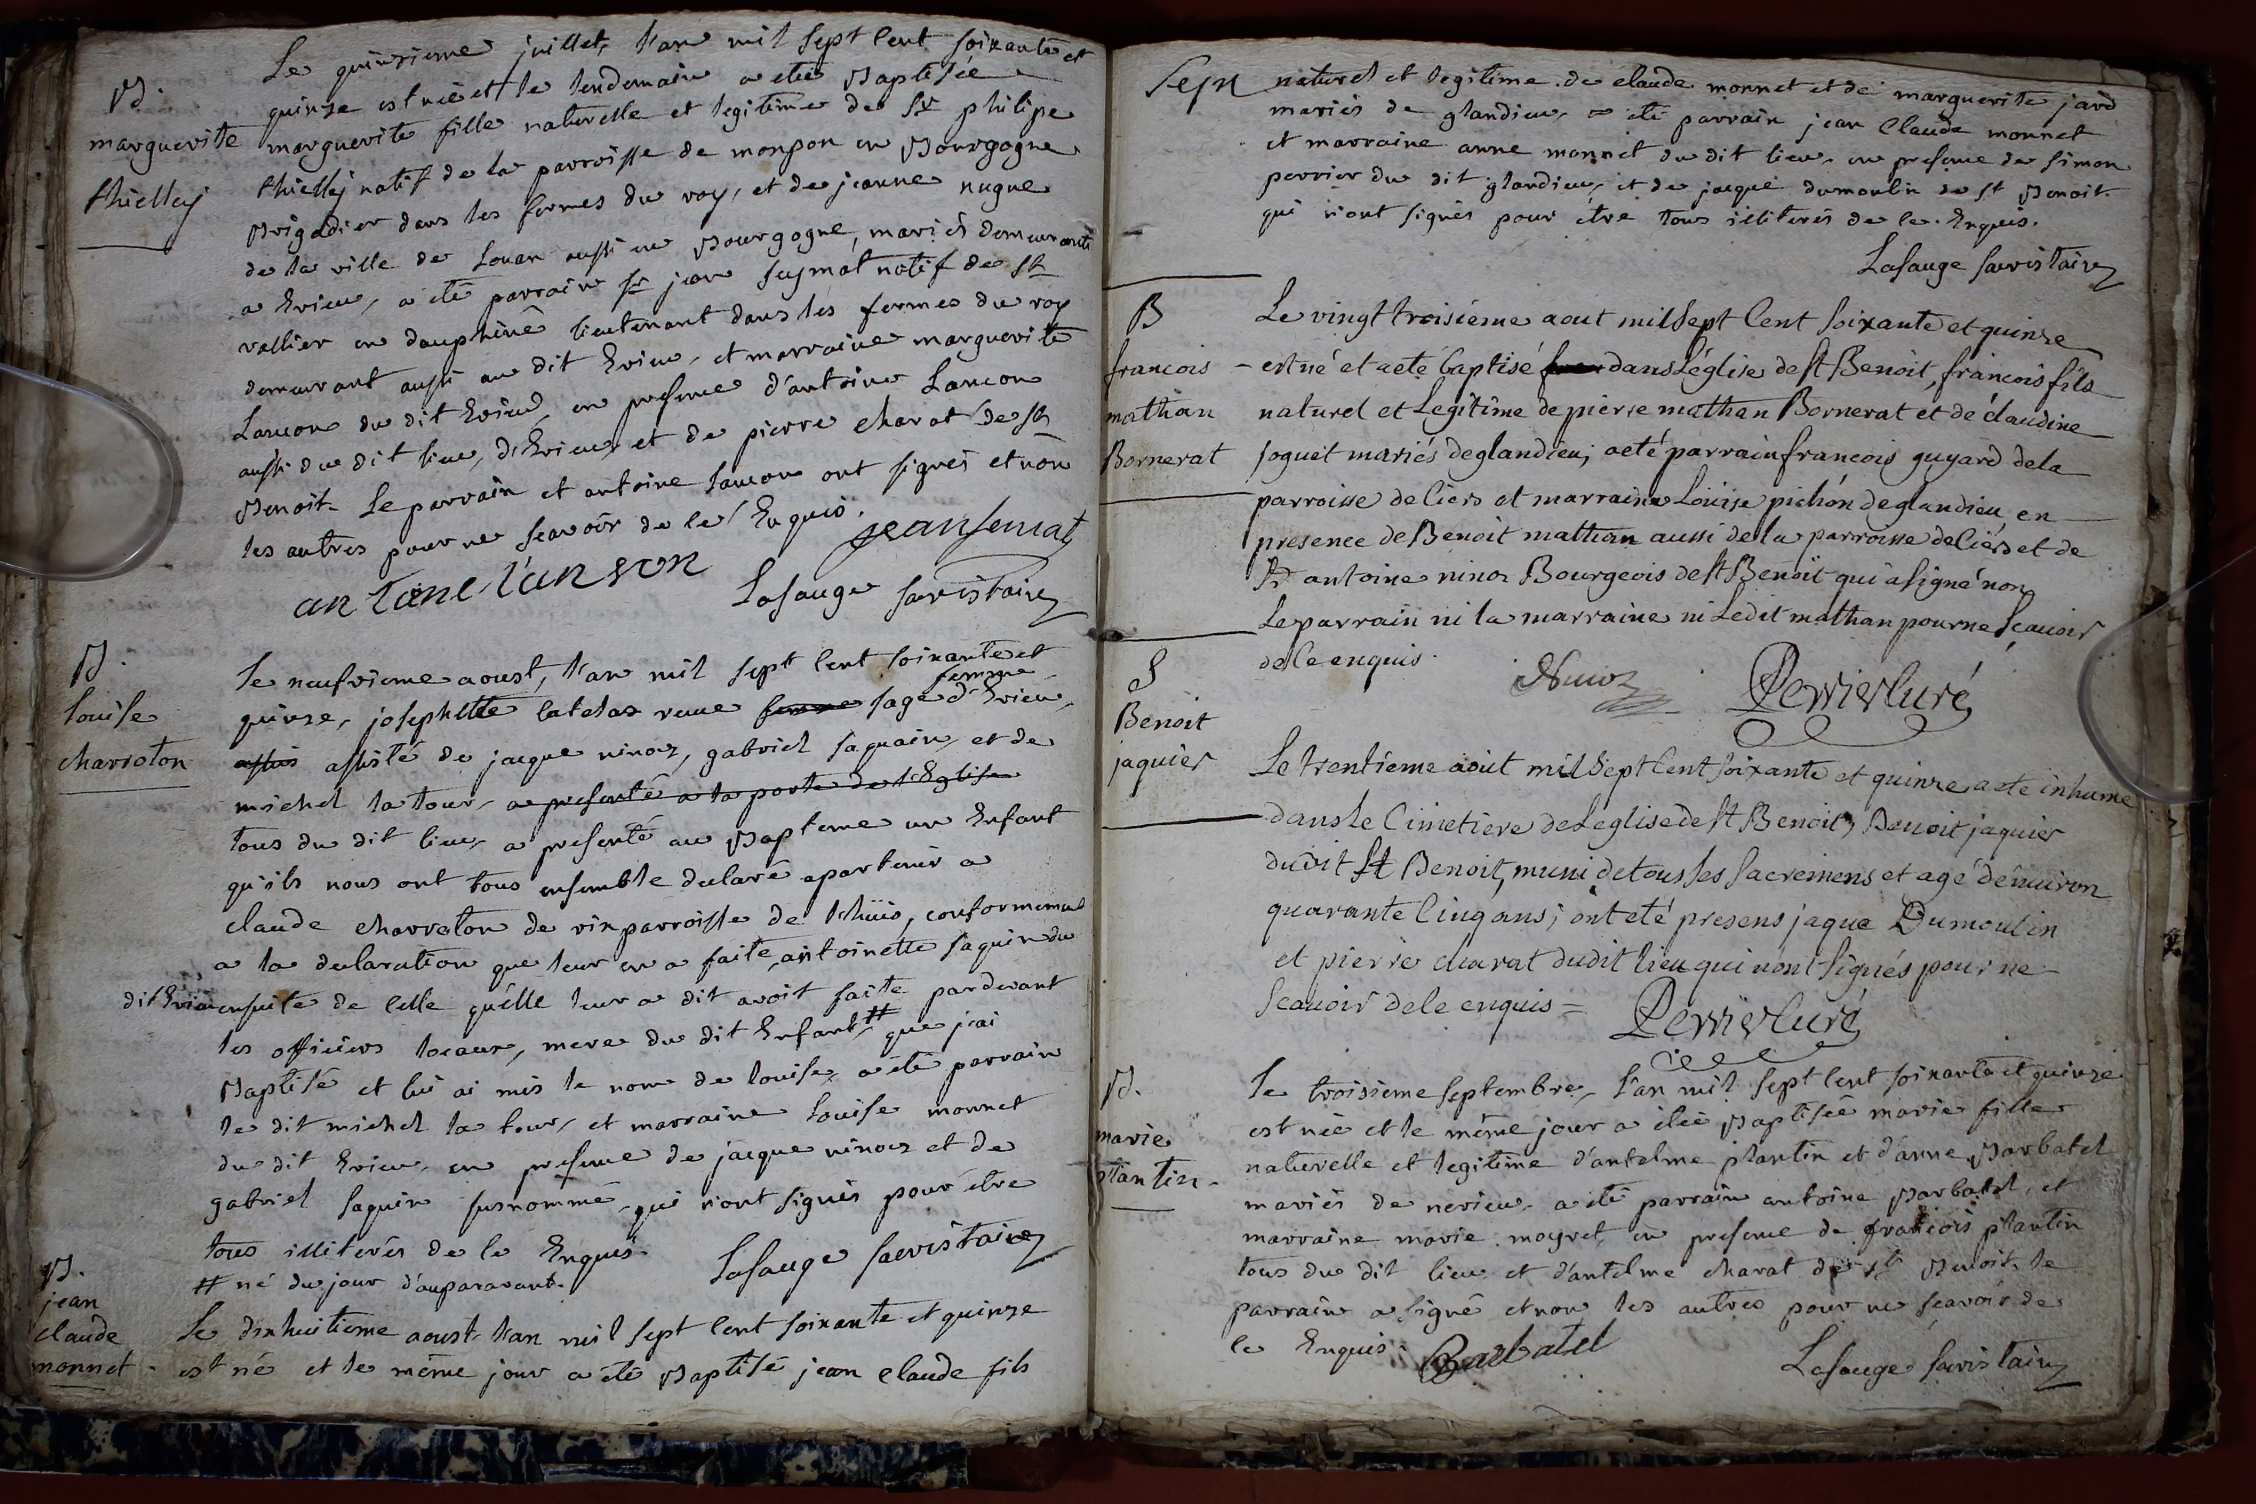 B.
marguerite
thielley
Le quinsieme juillet, l'an mil sept cent soixante et
quinse est née et le lendemain a eté Baptisée
marguerite fille naturelle et legitime de sr philipe
thielley natif de la parroisse de monpon en Bourgogne
Brigadier dans les fermes du roy, et de jeanne nugue
de la ville de Louan aussi en Bourgogne, mariés demeurants
a Evieu, a eté parrain sr jean seymat natif de st
vallier en dauphiné lieutenant dans les fermes du roy
demeurant aussi au dit Evieu, et marraine marguerite
Lanson du dit Evieu, en presence d'antoine Lanson
aussi du dit lieu, d'Evieu, et de pierre charat de st
Benoit. Le parrain et antoine Lanson ont signés et non
les autres pour ne scavoir de ce Enquis.
jean semat
antoine lanson
Lasauge sacristain
B.
louise
charreton
Le neufvieme aoust, l'an mil sept cent soixante et
quinse, josephette catelas veuve femme sage femme d'Evieu,
assisté de jacque ninoz, gabriel saquain, et de
michel la tour, a presenté a la porte de l'Eglise
tous du dit lieu, a presenté au Bapteme un Enfant
qu'ils nous ont tous ensemble declaré apartenir a
claude charreton de vix parroisse de l'huis, conformement
a la declaration que leur en a faite, antoinette saquin du
dit Evieu ensuite de celle qu'elle leur a dit avoir faite pardevant
les officiers locaux, mere du dit Enfant, # que j'ai
Baptisé et lui ai mis le nom de louise, a eté parrain
le dit michel la tour, et marraine louise monnet
du dit Evieu, en presence de jacque ninoz et de
gabriel saquin susnommé, qui n'ont signés pour être
tous illiterés de ce Enquis.
# né du jour d'auparavant.
Lasauge sacristain
B.
jean
claude
monnet
Le dixhuitieme aoust l'an mil sept cent soixante et quinse
est né et le même jour a eté Baptisé jean claude fils
Sept
naturel et legitime de claude monnet et de marguerite jard
mariés de glandieu, a eté parrain jean claude monnet
et marraine anne monnet du dit lieu, en presence de simon
perrier du dit glandieu, et de jacque dumoulin de st Benoit
qui n'ont signés pour être tous illiterés de ce Enquis.
Lasauge sacristain
B
francois
mathan
Bornerat
Le vingt troisième aout mil sept Cent soixante et quinze
est né et a eté baptisé dans L'église de st Benoit, francois fils
naturel et Legitime de pierre mathan Bornerat et de claudine
joguet mariés de glandieu; a eté parrain francois guyard de la
parroisse de Ciers et marraine Loüise pichon de glandieu, en
presence de Benoit mathan aussi de la parroisse de Ciers et de
sr antoine ninoz Bourgeois de st Benoit qui a signé non
Le parrain ni la marraine ni Ledit mathan pour ne scauoir
de Ce enquis.
Ninoz
Perrier Curé
S
Benoit
jaquier
Le trentieme aout mil Sept Cent soixante et quinze a eté inhume
dans Le Cimetiere de L'eglise de st Benoit, Benoit jaquier
dudit st Benoit, muni de tous ses sacremens et agé denuiron
quarante Cinq ans; ont eté presens jaque Dumoulin
et pierre charat dudit lieu qui n'ont signés pour ne
scauoir de ce enquis =
Perrier Curé
B.
marie
plantin.
Le troisieme septembre, l'an mil sept cent soixante et quinze
est née et le même jour a etée Baptisée marie fille
naturelle et legitime d'antelme plantin et d'anne Barbatel
mariés de nerieu, a eté parrain antoine Barbatel, et
marraine marie mayret, en presence de francois plantin
tous du dit lieu et d'antelme charat de st Benoit. le
parrain a signé et non les autres pour ne scavoir de
ce Enquis.
Barbatel
Lasauge sacristain